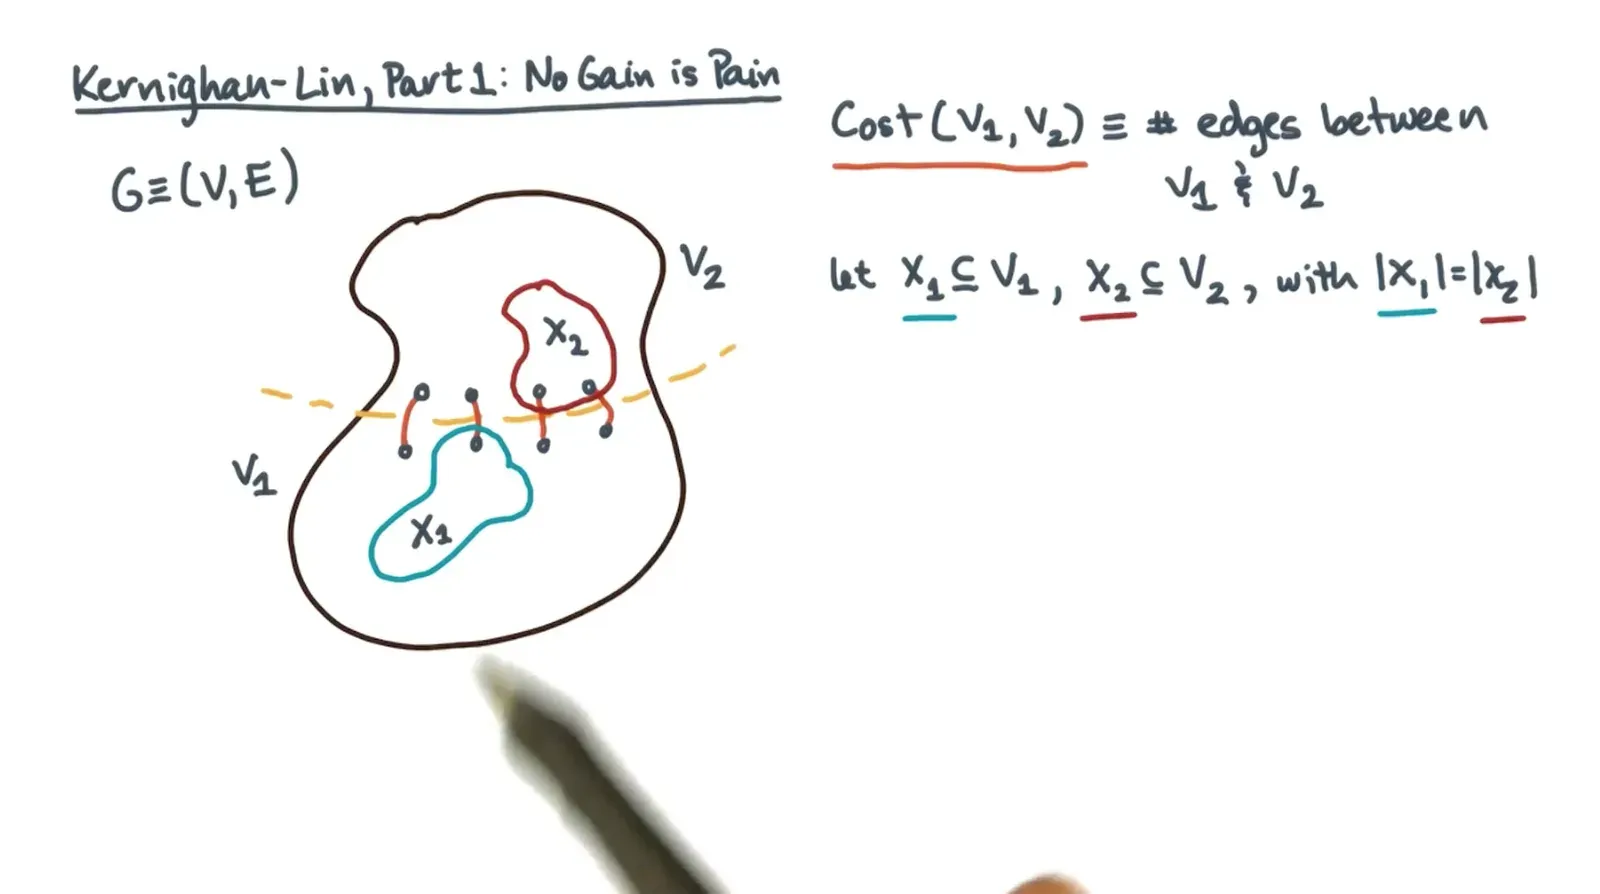 Kernighan-Lin, Part 1: No Gain is Pain
G≡(V,E)
Cost(V₁,V₂) ≡ # edges between
V₁ & V₂
let X₁⊆V₁, X₂⊆V₂, with |X₁|=|X₂|
V₂
X₂
V₁
X₁